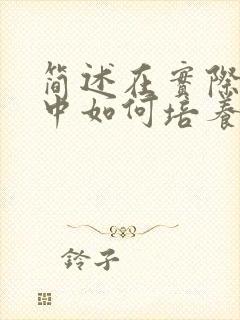 简述在實際
中如何培養
鈴子